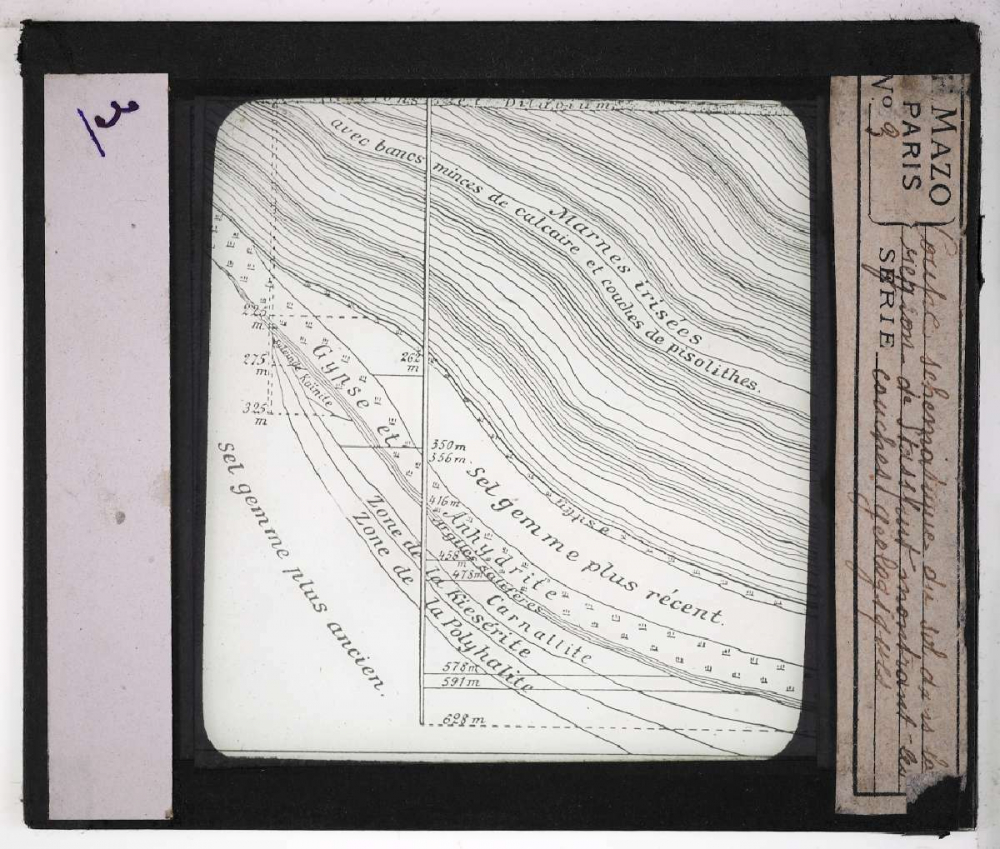 Diluvium
avec bancs minces de calcaire et couches de pisolithes.
Marnes irisées
225 m
275 m
325 m
Gypse et
Kaïnite
262 m
350 m
356 m
416 m
458 m
478 m
578 m
591 m
628 m
Gypse
Sel gemme plus récent.
Anhydrite
argiles salifères
Carnallite
Zone de la Kiesérite
Zone de la Polyhalite
Sel gemme plus ancien.
MAZO
PARIS
No 3
SÉRIE
Coupe schématique du sol dans la
région de Stassfurt montrant les
couches géologiques